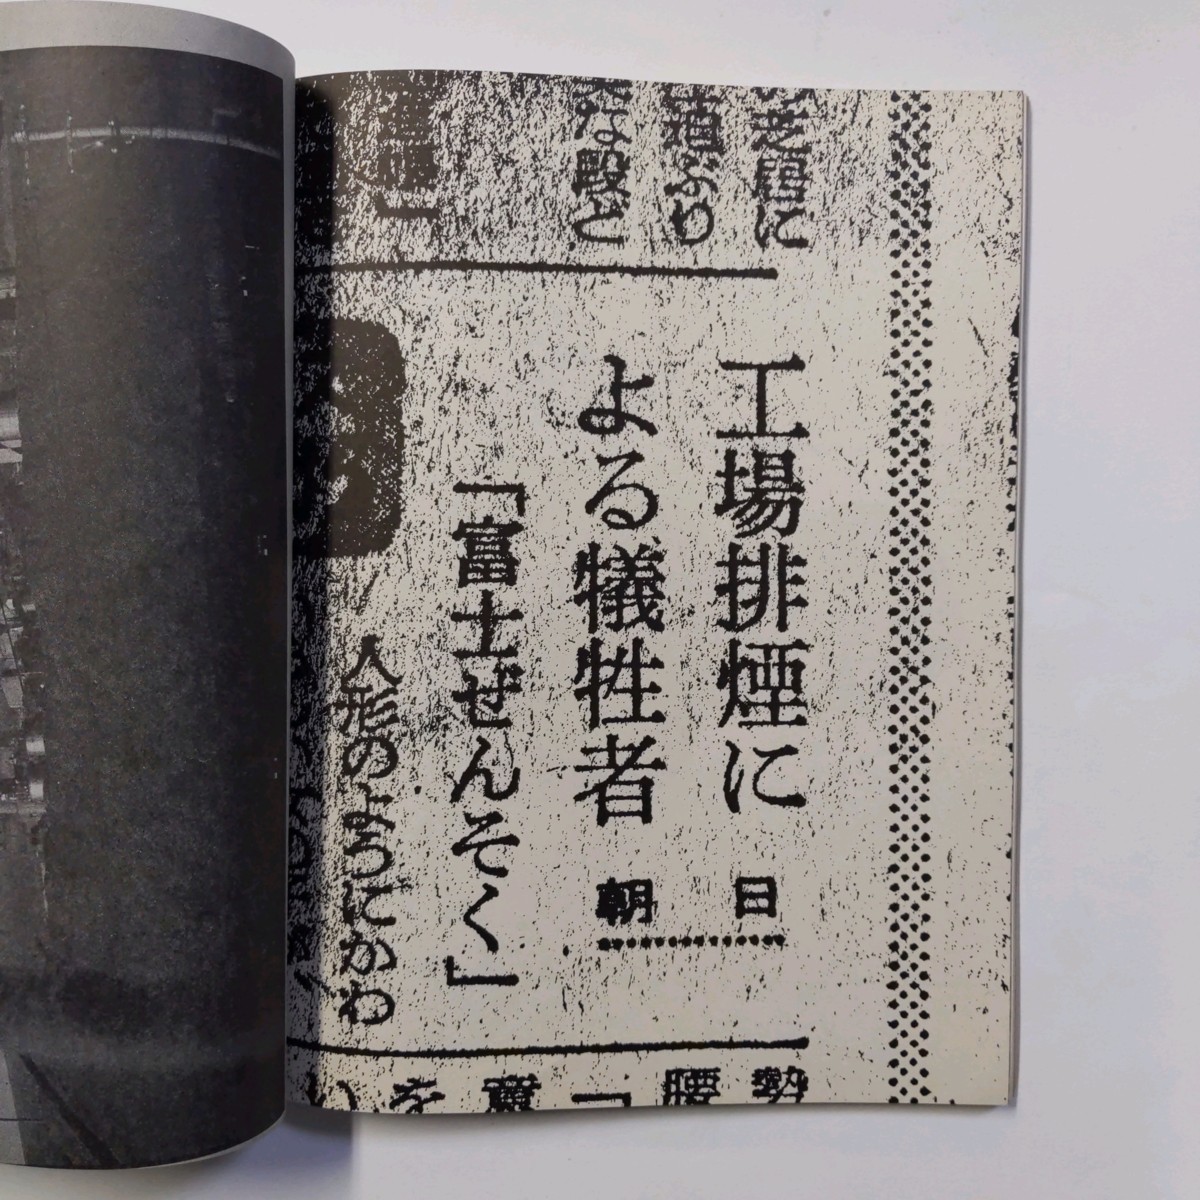 芝居に
酒ぶり
な殿と
工場排煙に
よる犠牲者
日
朝
「富士ぜんそく」
人形のようにかわ
勢
腰
っ
裏
を
い